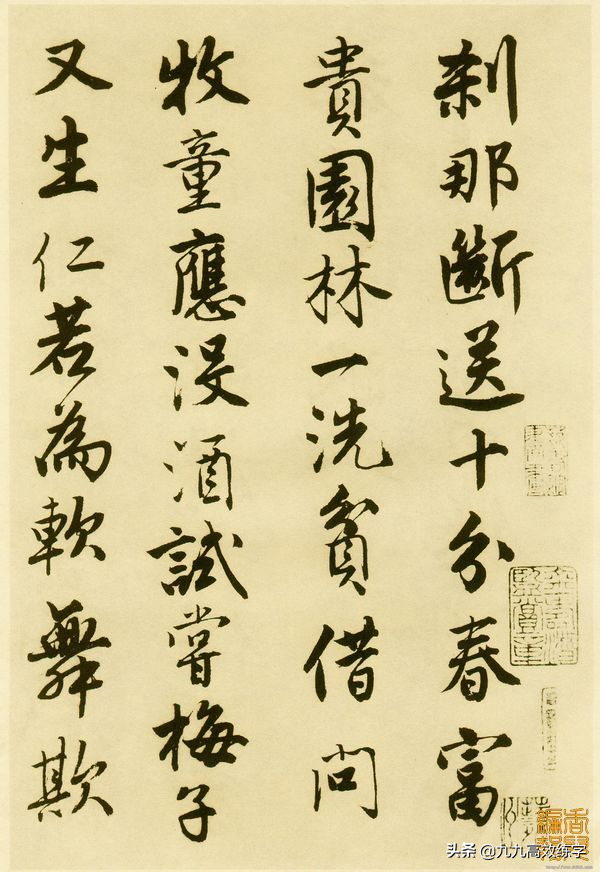 刹那斷送十分春富
貴園林一洗貧借問
牧童應没酒試嘗梅子
又生仁若為軟舞欺
头条 @九九高效练字